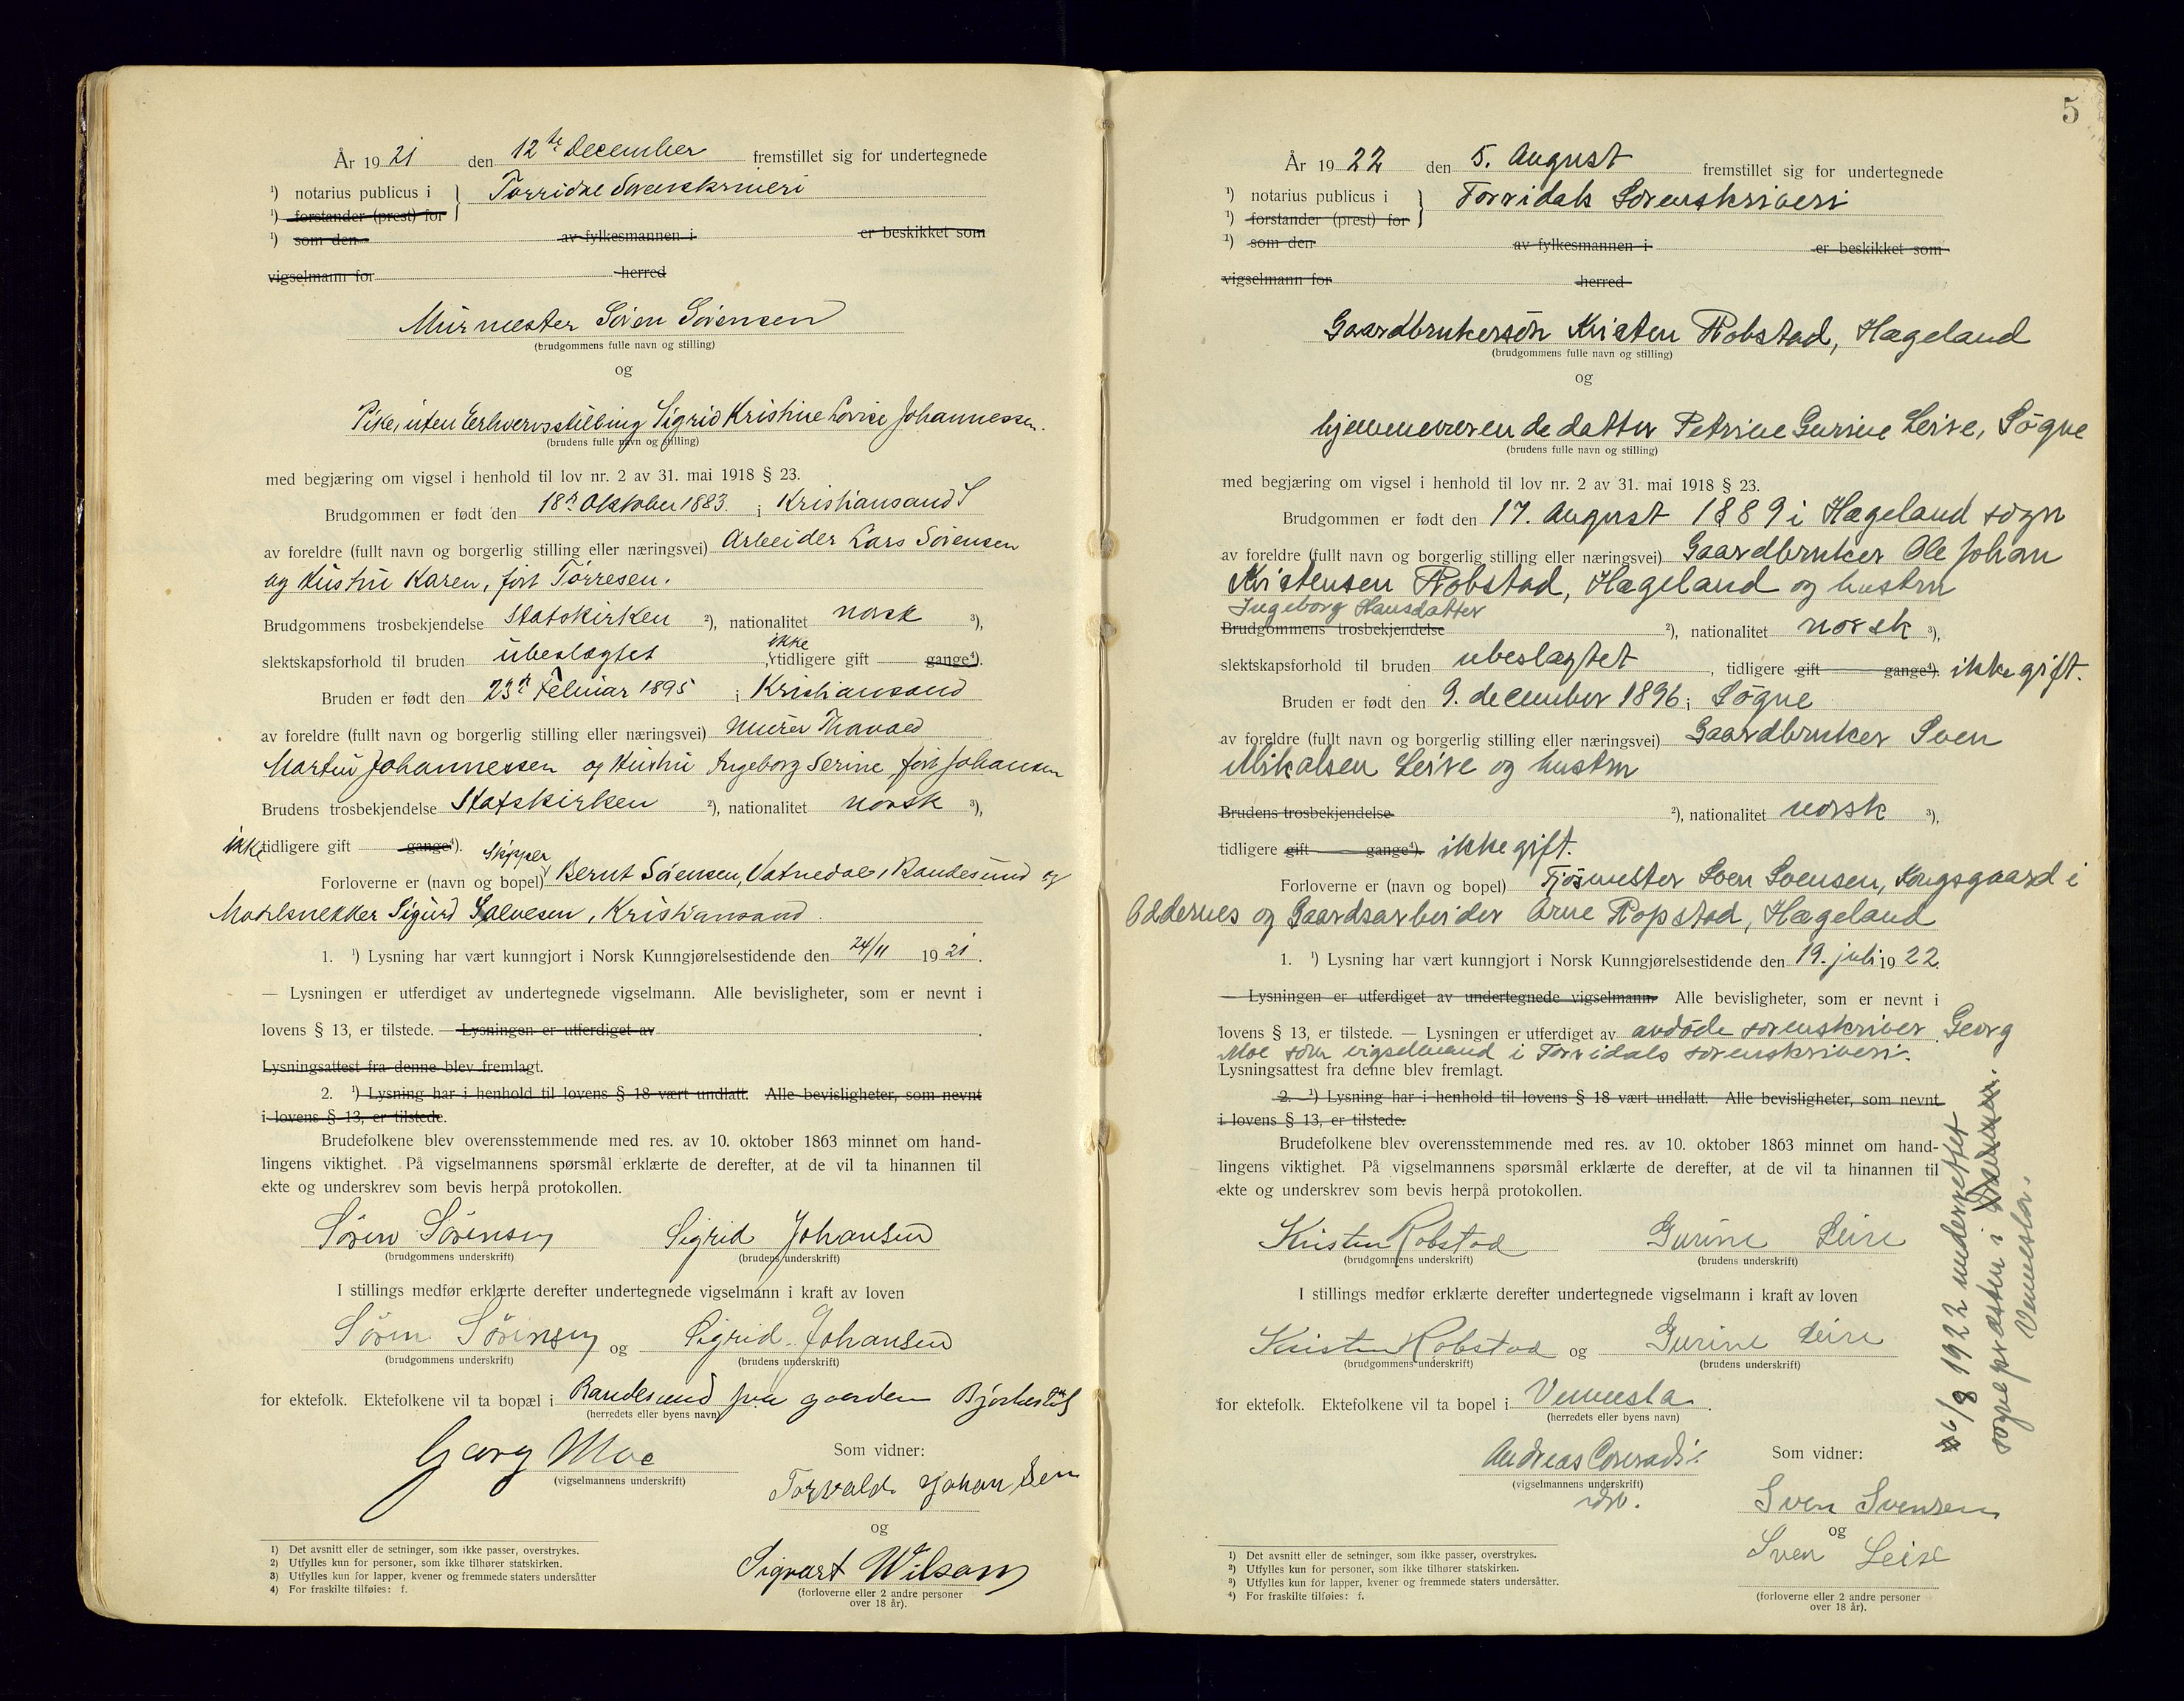 År 19 21 den 12te December fremstillet sig for undertegnede
¹) notarius publicus i } Torridal Sorenskriveri
¹) forstander (prest) for
¹) som den av fylkesmannen i er beskikket som
vigselmann for herred
Murmester Søren Sørensen
(brudgommens fulle navn og stilling)
og
Pike, uten Erhvervsstilling Sigrid Kristine Lovise Johannessen.
(brudens fulle navn og stilling)
med begjæring om vigsel i henhold til lov nr. 2 av 31. mai 1918 § 23.
Brudgommen er født den 18de Oktober 1883 i Kristiansand S
av foreldre (fullt navn og borgerlig stilling eller næringsvei) Arbeider Lars Sørensen
og Hustru Karen, født Tørresen.
Brudgommens trosbekjendelse Statskirken ²), nationalitet norsk ³),
slektskapsforhold til bruden ubeslægtet , ikke tidligere gift gange⁴).
Bruden er født den 23de Februar 1895 i Kristiansand
av foreldre (fullt navn og borgerlig stilling eller næringsvei) Murer Thorvald
Martin Johannessen og Hustru Ingeborg Serine, født Johansen
Brudens trosbekjendelse Statskirken ²), nationalitet norsk ³),
ikke tidligere gift gange⁴).
Forloverne er (navn og bopel) Skipper Bernt Sørensen, Vatnedal i Randesund og
Modelsnekker Sigurd Salvesen, Kristiansand.
1. ¹) Lysning har vært kunngjort i Norsk Kunngjørelsestidende den 24/11 19 21.
— Lysningen er utferdiget av undertegnede vigselmann. Alle bevisligheter, som er nevnt i
lovens § 13, er tilstede. — Lysningen er utferdiget av .
Lysningsattest fra denne blev fremlagt.
2. ¹) Lysning har i henhold til lovens § 18 vært undlatt. Alle bevisligheter, som nevnt
i lovens § 13, er tilstede.
Brudefolkene blev overensstemmende med res. av 10. oktober 1863 minnet om hand-
lingens viktighet. På vigselmannens spørsmål erklærte de derefter, at de vil ta hinannen til
ekte og underskrev som bevis herpå protokollen.
Søren Sørensen Sigrid Johansen
(brudgommens underskrift) (brudens underskrift)
I stillings medfør erklærte derefter undertegnede vigselmann i kraft av loven
Søren Sørensen og Sigrid Johansen
(brudgommens underskrift) (brudens underskrift)
for ektefolk. Ektefolkene vil ta bopæl i Randesund paa gaarden
(herredets eller byens navn)
Georg Moe Som vidner:
(vigselmannens underskrift)
Torvald Johansen
og
Sigvart Wilson
(forloverne eller 2 andre personer
over 18 år).
1) Det avsnitt eller de setninger, som ikke passer, overstrykes.
2) Utfylles kun for personer, som ikke tilhører statskirken.
3) Utfylles kun for lapper, kvener og fremmede staters undersåtter
4) For fraskilte tilføies: f.
5
År 19 22 den 5. August fremstillet sig for undertegnede
¹) notarius publicus i } Torridals Sorenskriveri
¹) forstander (prest) for
¹) som den av fylkesmannen i er beskikket som
vigselmann for herred
Gaardbrukersøn Kristen Robstad, Hægeland
(brudgommens fulle navn og stilling)
og
hjemmeværende datter Petrine Gurine Leire, Søgne
(brudens fulle navn og stilling)
med begjæring om vigsel i henhold til lov nr. 2 av 31. mai 1918 § 23.
Brudgommen er født den 17. August 1889 i Hægeland sogn
av foreldre (fullt navn og borgerlig stilling eller næringsvei) Gaardbruker Ole Johan
Kristensen Robstad, Hægeland og hustru
Ingeborg Hansdatter
Brudgommens trosbekjendelse ²), nationalitet norsk ³),
slektskapsforhold til bruden ubeslægtet , tidligere gift gange⁴). ikke gift.
Bruden er født den 9. december 1896 i Søgne
av foreldre (fullt navn og borgerlig stilling eller næringsvei) Gaardbruker Sven
Mikalsen Leire og hustru
Brudens trosbekjendelse ²), nationalitet norsk ³),
tidligere gift gange⁴). ikke gift.
Forloverne er (navn og bopel) Fjøsmester Sven Svensen, Kongsgaard i
Oddernes og Gaardsarbeider Arne Ropstad, Hægeland
1. ¹) Lysning har vært kunngjort i Norsk Kunngjørelsestidende den 19. juli 19 22.
— Lysningen er utferdiget av undertegnede vigselmann. Alle bevisligheter, som er nevnt i
lovens § 13, er tilstede. — Lysningen er utferdiget av avdøde sorenskriver Georg
Moe som vigselmand i Torridals sorenskriveri.
Lysningsattest fra denne blev fremlagt.
2. ¹) Lysning har i henhold til lovens § 18 vært undlatt. Alle bevisligheter, som nevnt
i lovens § 13, er tilstede.
Brudefolkene blev overensstemmende med res. av 10. oktober 1863 minnet om hand-
lingens viktighet. På vigselmannens spørsmål erklærte de derefter, at de vil ta hinannen til
ekte og underskrev som bevis herpå protokollen.
Kristen Robstad Gurine Leire
(brudgommens underskrift) (brudens underskrift)
I stillings medfør erklærte derefter undertegnede vigselmann i kraft av loven
Kristen Robstad og Gurine Leire
(brudgommens underskrift) (brudens underskrift)
for ektefolk. Ektefolkene vil ta bopel i Vennesla.
(herredets eller byens navn)
Andreas Conradi Som vidner:
(vigselmannens underskrift)
Sven Svensen
og
Sven Leire
(forloverne eller 2 andre personer
over 18 år).
1) Det avsnitt eller de setninger, som ikke passer, overstrykes.
2) Utfylles kun for personer, som ikke tilhører statskirken.
3) Utfylles kun for lapper, kvener og fremmede staters undersåtter.
4) For fraskilte tilføies: f.
6/8 1922 underrettet
sognepræsten i
Vennesla.